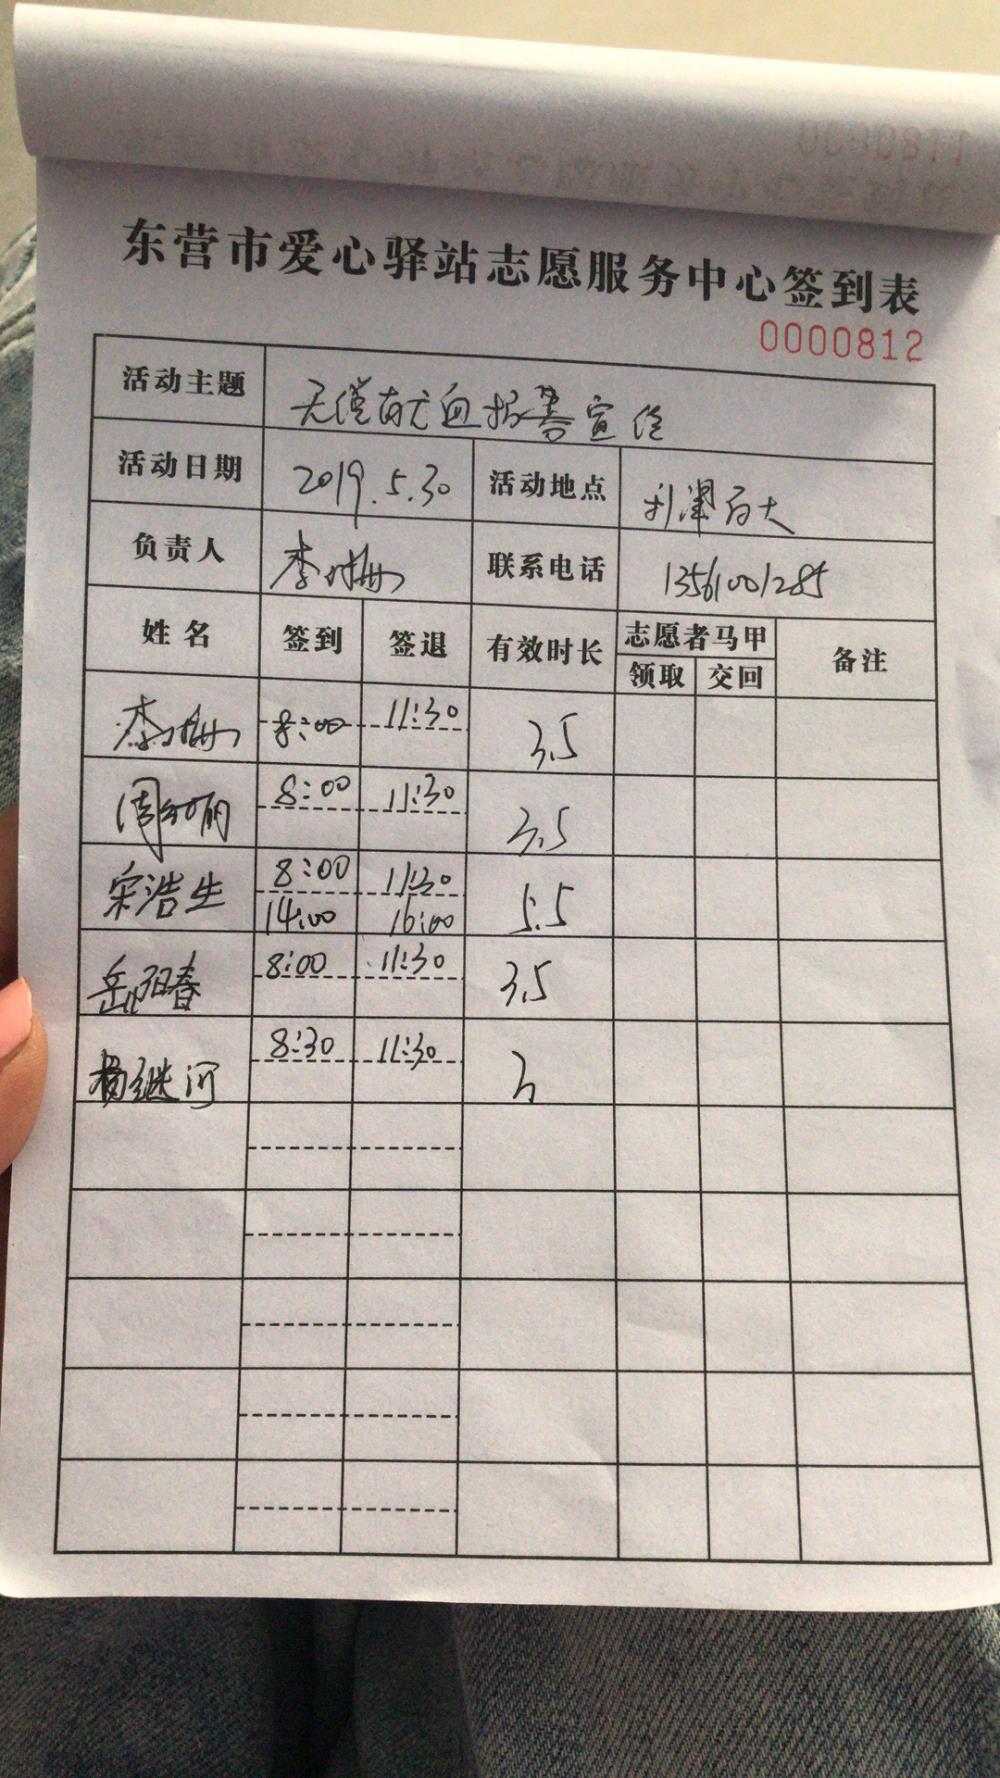 东营市爱心驿站志愿服务中心签到表
0000812
活动主题 无偿献血招募宣传
活动日期 2019.5.30 活动地点 利津百大
负责人 李 联系电话 13561001285
姓名 签到 签退 有效时长 志愿者马甲 备注
领取 交回
李 8:00 11:30 3.5
周 丽 8:00 11:30 3.5
宋浩生 8:00 11:30 5.5
14:00 16:00
岳阳春 8:00 11:30 3.5
杨继河 8:30 11:30 3